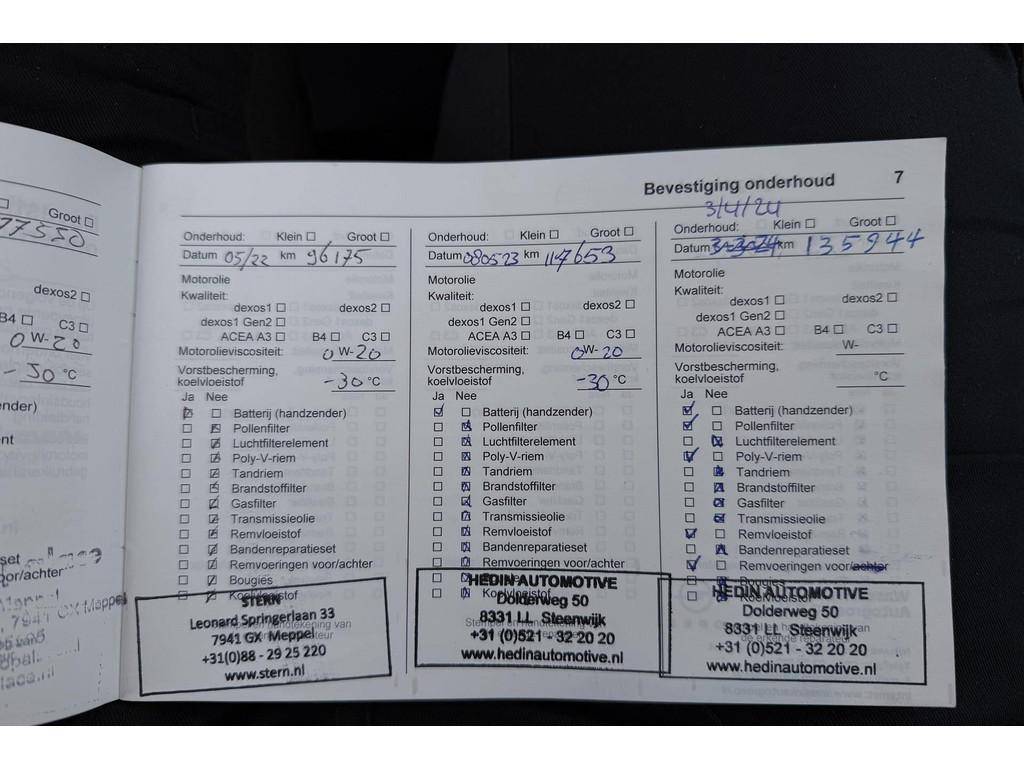 Groot
77550
dexos2
B4 C3
0 W-20
-30 °C
Bevestiging onderhoud 7
Onderhoud: Klein Groot
Datum 05/22 km 96175
Motorolie
Kwaliteit:
dexos1 dexos2
dexos1 Gen2
ACEA A3 B4 C3
Motorolieviscositeit: 0 W-20
Vorstbescherming,
koelvloeistof -30 °C
Ja Nee
Batterij (handzender)
Pollenfilter
Luchtfilterelement
Poly-V-riem
Tandriem
Brandstoffilter
Gasfilter
Transmissieolie
Remvloeistof
Bandenreparatieset
Remvoeringen voor/achter
Bougies
Koelvloeistof
STERN
Leonard Springerlaan 33
7941 GX Meppel
+31(0)88 - 29 25 220
www.stern.nl
Onderhoud: Klein Groot
Datum 080523 km 117653
Motorolie
Kwaliteit:
dexos1 dexos2
dexos1 Gen2
ACEA A3 B4 C3
Motorolieviscositeit: 0W- 20
Vorstbescherming,
koelvloeistof -30 °C
Ja Nee
Batterij (handzender)
Pollenfilter
Luchtfilterelement
Poly-V-riem
Tandriem
Brandstoffilter
Gasfilter
Transmissieolie
Remvloeistof
Bandenreparatieset
Remvoeringen voor/achter
HEDIN AUTOMOTIVE
Dolderweg 50
8331 LL Steenwijk
+31 (0)521 - 32 20 20
www.hedinautomotive.nl
3/4/24
Onderhoud: Klein Groot
Datum 3-3-24 km 135944
Motorolie
Kwaliteit:
dexos1 dexos2
dexos1 Gen2
ACEA A3 B4 C3
Motorolieviscositeit: W-
Vorstbescherming,
koelvloeistof °C
Ja Nee
Batterij (handzender)
Pollenfilter
Luchtfilterelement
Poly-V-riem
Tandriem
Brandstoffilter
Gasfilter
Transmissieolie
Remvloeistof
Bandenreparatieset
Remvoeringen voor/achter
Bougies
Koelvloeistof
HEDIN AUTOMOTIVE
Dolderweg 50
8331 LL Steenwijk
+31 (0)521 - 32 20 20
www.hedinautomotive.nl